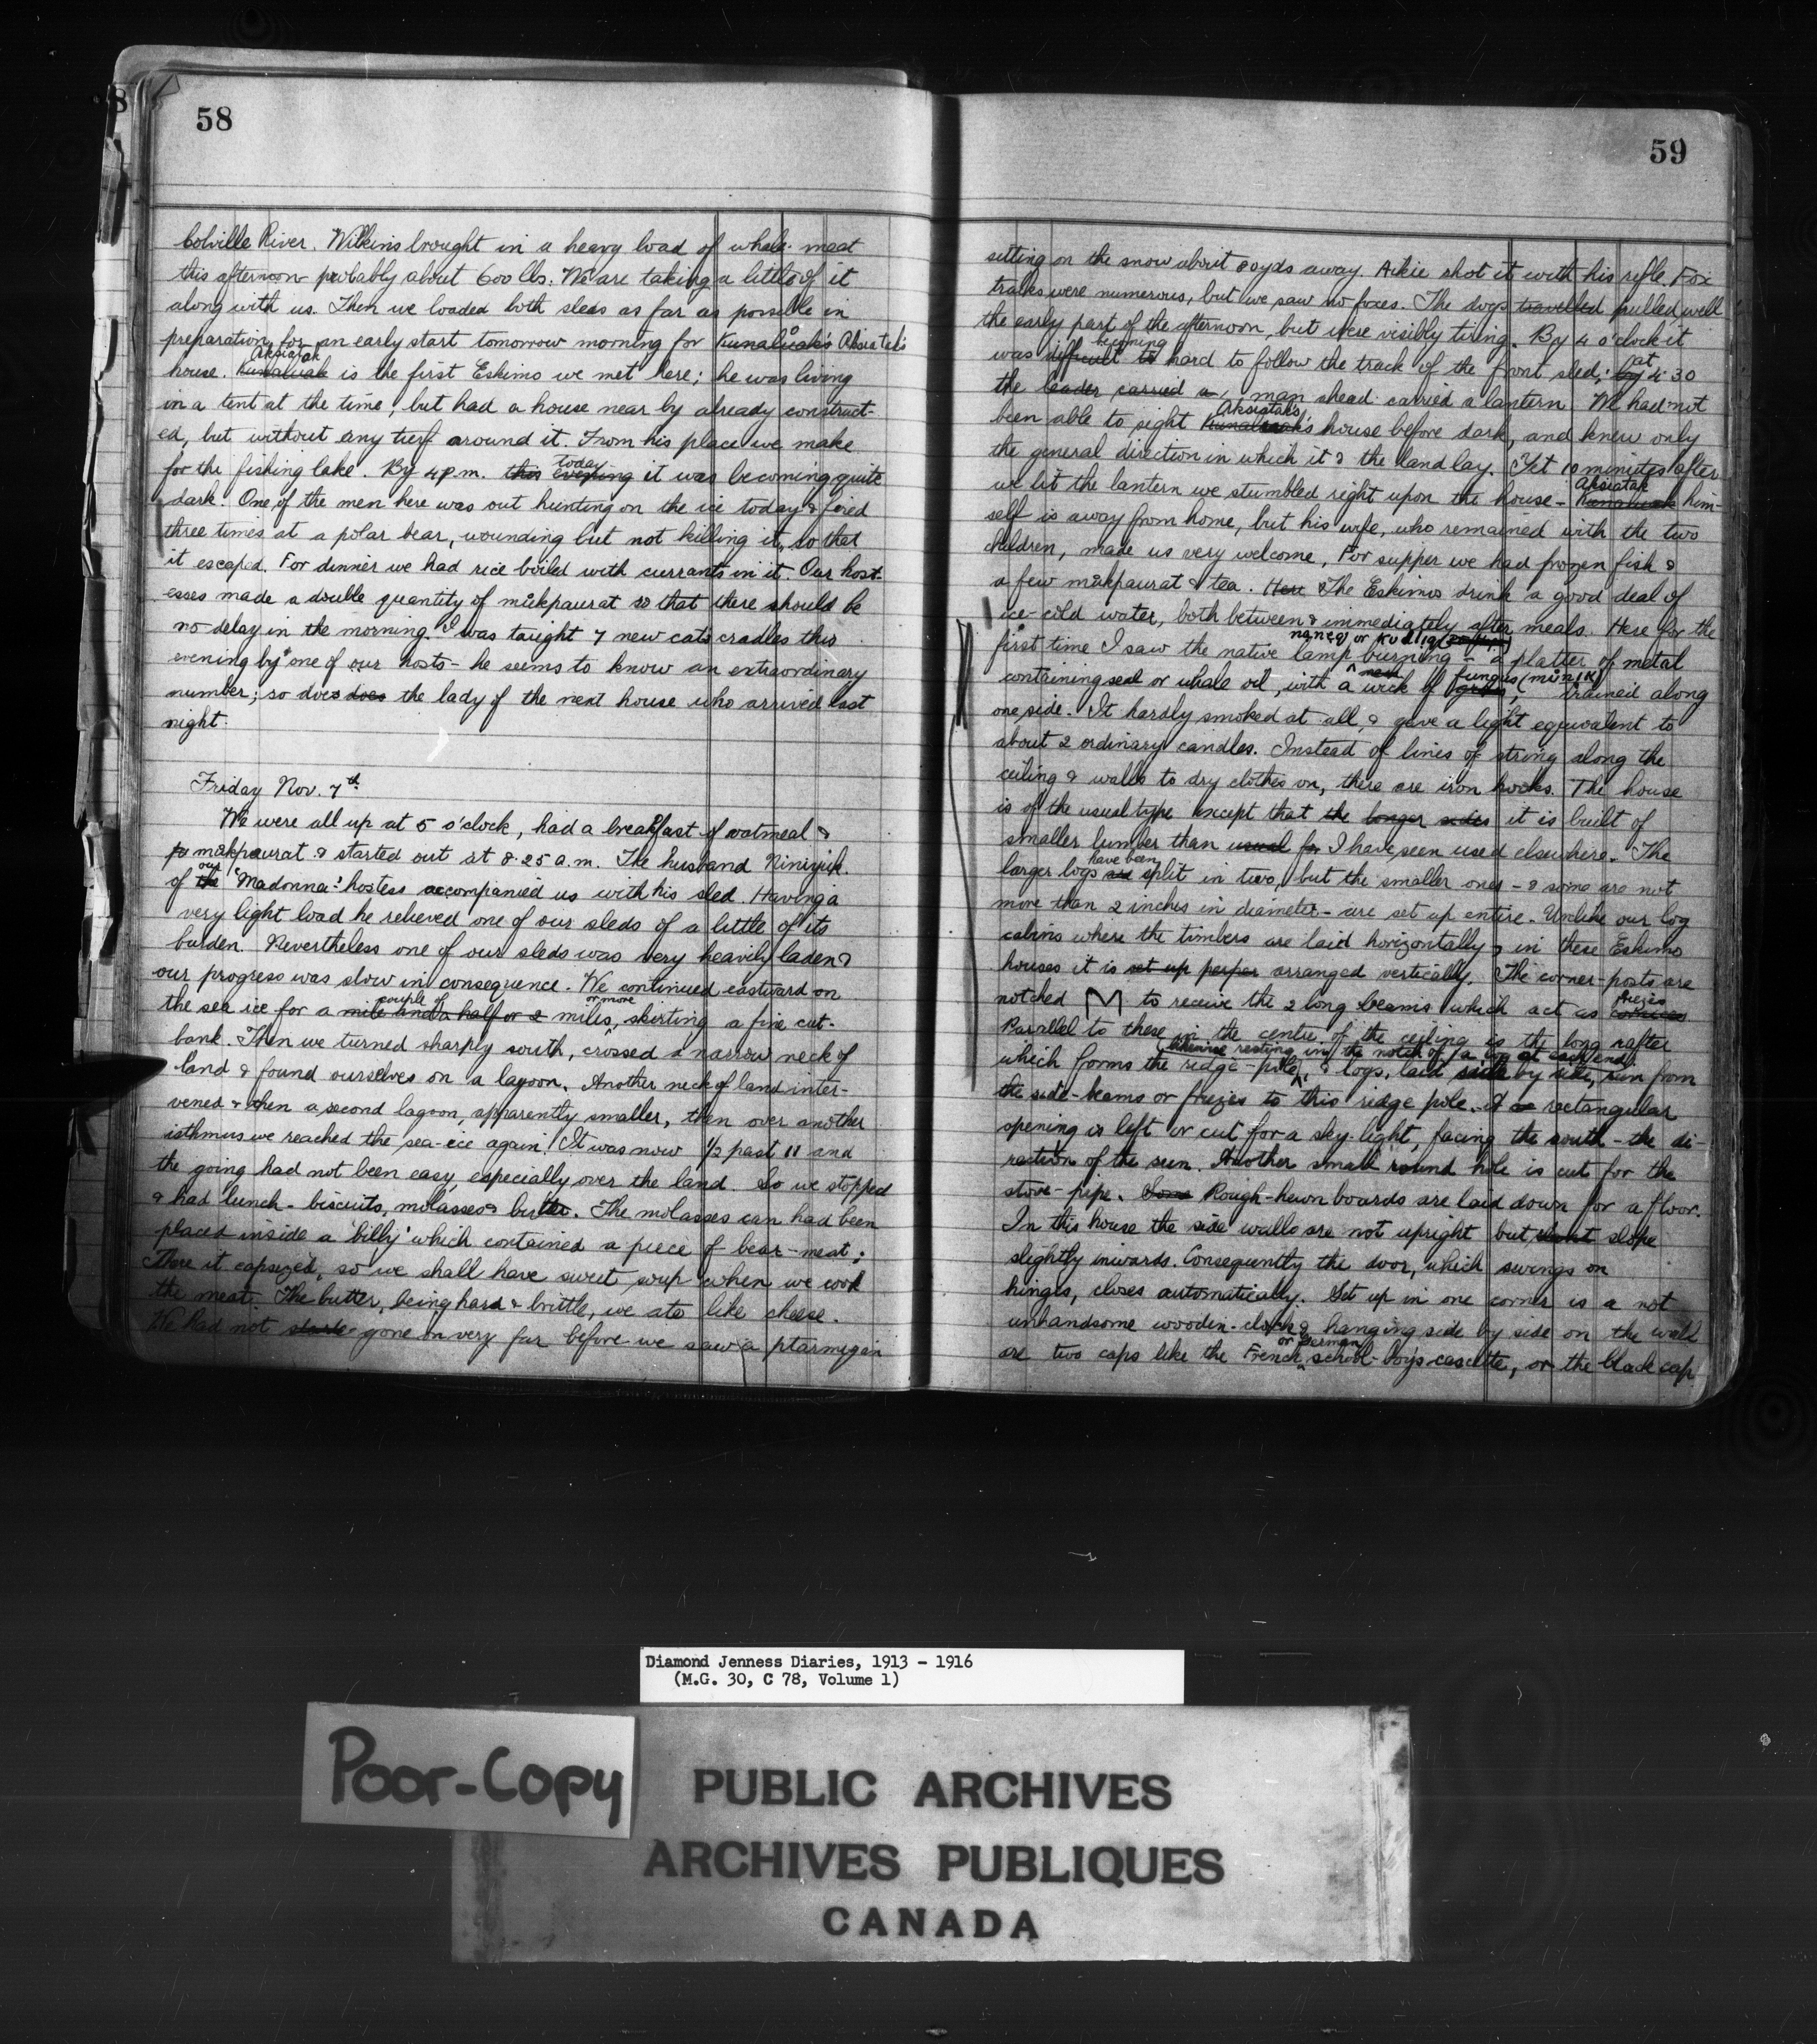 58
Colville River. Wilkins brought in a heavy load of whale-meat
this afternoon probably about 600 lbs. We are taking a little of it
along with us. Then we loaded both sleds as far as possible in
preparation for an early start tomorrow morning for Kunaluak's Aksiatak's
Aksiatak
house. Kunaluak is the first Eskimo we met here; he was living
in a tent at the time, but had a house near by already construct-
ed, but without any turf around it. From his place we make
today
for the fishing lake. By 4 p.m. this evening it was becoming quite
dark. One of the men here was out hunting on the ice today & fired
three times at a polar bear, wounding but not killing it, so that
it escaped. For dinner we had rice boiled with currants in it. Our host-
esses made a double quantity of mŭkpaurat so that there should be
no delay in the morning. I was taught 7 new cats cradles this
evening by one of our hosts - he seems to know an extraordinary
number; so does does the lady of the next house who arrived last
night.
Friday Nov. 7th
We were all up at 5 o'clock, had a breakfast of oatmeal &
mŭkpaurat & started out at 8.25 a.m. The husband Niniyuk
our
of the 'Madonna' hostess accompanied us with his sled. Having a
very light load he relieved one of our sleds of a little of its
burden. Nevertheless one of our sleds was very heavily laden &
our progress was slow in consequence. We continued eastward on
couple of or more
the sea ice for a mile and a half or 2 miles, skirting a fine cut-
bank. Then we turned sharply south, crossed a narrow neck of
land & found ourselves on a lagoon. Another neck of land inter-
vened & then a second lagoon, apparently smaller, then over another
isthmus we reached the sea-ice again. It was now 1/2 past 11 and
the going had not been easy, especially over the land. So we stopped
& had lunch - biscuits, molasses & butter. The molasses can had been
placed inside a 'billy' which contained a piece of bear-meat;
There it capsized, so we shall have sweet soup when we cook
the meat. The butter, being hard & brittle, we ate like cheese.
We had not gone on very far before we saw a ptarmigan
59
sitting on the snow about 80 yds away. Aikie shot it with his rifle. Fox
tracks were numerous, but we saw no foxes. The dogs travelled pulled well
the early part of the afternoon, but were visibly tiring. By 4 o'clock it
becoming at
was difficult to hard to follow the track of the front sled; by 4.30
the leader carried a man ahead carried a lantern. We had not
Aksiatak's
been able to sight Kunaluak's house before dark, and knew only
the general direction in which it & the land lay. Yet 10 minutes after
Aksiatak
we lit the lantern we stumbled right upon the house - Kunaluak him-
self is away from home, but his wife, who remained with the two
children, made us very welcome. For supper we had frozen fish &
a few mŭkpaurat & tea. Here The Eskimos drink a good deal of
ice-cold water, both between & immediately after meals. Here for the
naneq or kudliq
first time I saw the native lamp burning - a platter of metal
fungus
containing seal or whale oil, with a wick of grass, trained along
one side. It hardly smoked at all, & gave a light equivalent to
about 2 ordinary candles. Instead of lines of string along the
ceiling & walls to dry clothes on, there are iron hooks. The house
is of the usual type except that the longer sides it is built of
smaller lumber than usual for I have seen used elsewhere. The
have been
larger logs are split in two, but the smaller ones - & some are not
more than 2 inches in diameter - are set up entire. Unlike our log
cabins where the timbers are laid horizontally, in these Eskimo
houses it is set up perper arranged vertically. The corner-posts are
friezes
notched M to receive the 2 long beams which act as cornices
Parallel to these in the centre of the ceiling is the long rafter
likewise resting in the notch of a log at each end
which forms the ridge-pole, & logs, laid side by side, run from
the side-beams or friezes to this ridge pole. A rectangular
opening is left or cut for a sky-light, facing the south - the di-
rection of the sun. Another small round hole is cut for the
stove-pipe. Some Rough-hewn boards are laid down for a floor.
In this house the side walls are not upright but slant slope
slightly inwards. Consequently the door, which swings on
hinges, closes automatically. Set up in one corner is a not
unhandsome wooden-clock & hanging side by side on the wall
or German
are two caps like the French school-boy's casquette, or the black cap
Diamond Jenness Diaries, 1913 - 1916
(M.G. 30, C 78, Volume 1)
Poor-Copy
PUBLIC ARCHIVES
ARCHIVES PUBLIQUES
CANADA